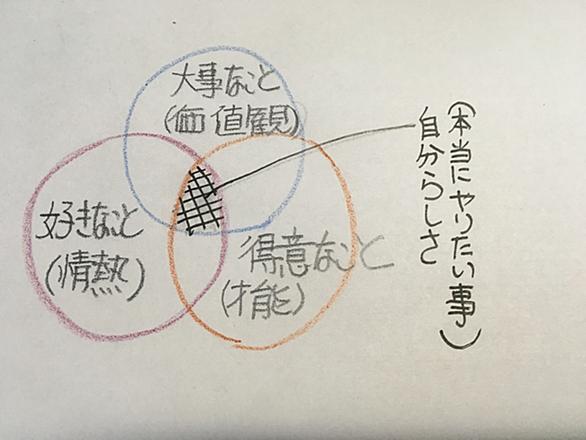 大事なこと
(価値観)
好きなこと
(情熱)
得意なこと
(才能)
自分らしさ
(本当にヤりたい事)